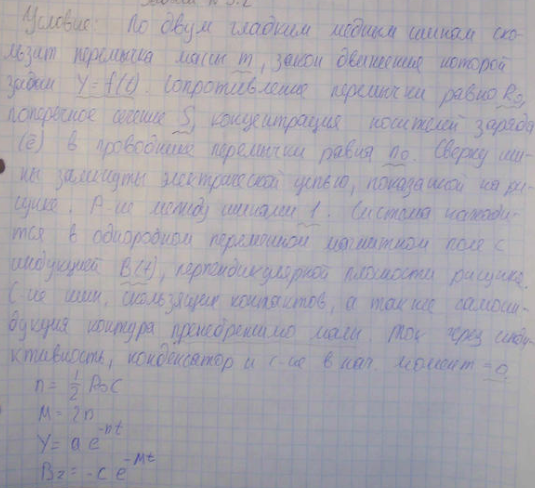 Условие: По двум гладким медным шинам ско-
льзит перемычка массы m, закон движения которой
задан Y=f(t). Сопротивление перемычки равно R0,
поперечное сечение S, концентрация носителей заряда
(ē) в проводнике перемычки равна n0. Сверху ши-
ны замкнуты электрической цепью, показанной на ри-
сунке. Р-ие между шинами l. Система находи-
тся в однородном переменном магнитном поле с
индукцией B(t), перпендикулярной плоскости рисунка.
С-ие шин, скользящих контактов, а также самоин-
дукция контура пренебрежимо малы. Ток через инду-
ктивность, конденсатор и с-ие в нач. момент = 0
n = 1/2 R0C
M = 2n
Y = a e^-nt
Bz = -c e^-Mt